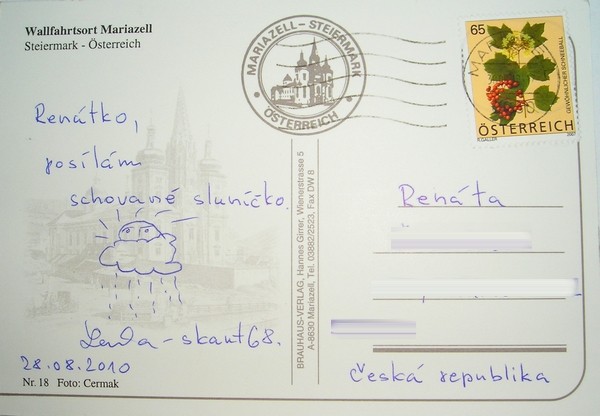 Wallfahrtsort Mariazell
Steiermark - Österreich
MARIAZELL - STEIERMARK
ÖSTERREICH
65
GEWÖHNLICHER SCHNEEBALL
ÖSTERREICH
2007
Renátko,
posílám
schované sluníčko.
Lenka - skaut68.
28.08.2010
Nr. 18 Foto: Cermak
BRAUHAUS-VERLAG, Hannes Girrer, Wienerstrasse 5
A-8630 Mariazell, Tel. 03882/2523, Fax DW 8
Renáta
Česká republika